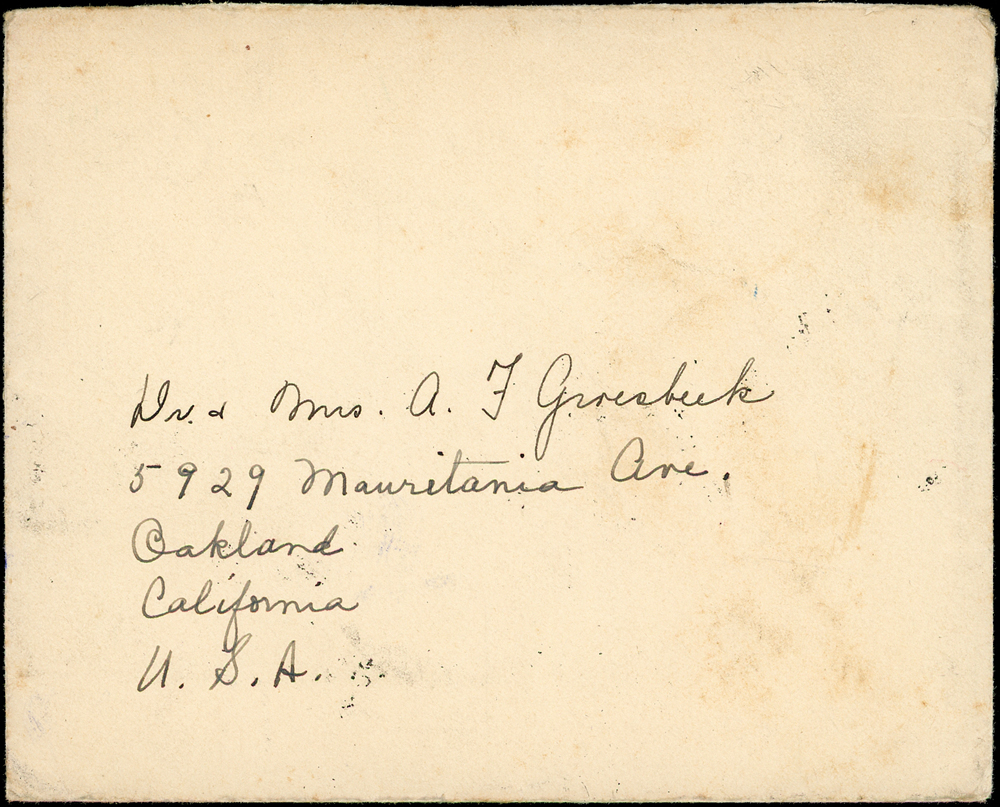 Dr. & Mrs. A. F Groesbeck
5929 Mauritania Ave.
Oakland
California
U. S. A.